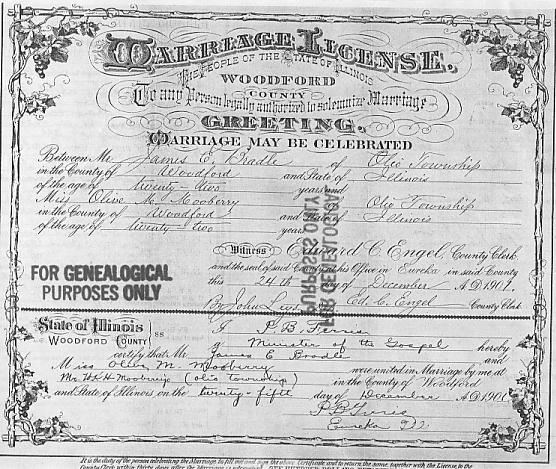 Marriage License.
The People of the State of Illinois
WOODFORD
COUNTY
To any Person legally authorized to solemnize Marriage
GREETING.
MARRIAGE MAY BE CELEBRATED
Between Mr. James E. Bradle of Olio Township
in the County of Woodford and State of Illinois
of the age of twenty-two years and
Miss Olive M. Mooberry of Olio Township
in the County of Woodford and State of Illinois
of the age of twenty-two years
Witness Edward C. Engel, County Clerk
and the seal of said County at his Office in Eureka in said County
this 24th day of December A.D. 190
By John Ed. C. Engel County Clerk
FOR GENEALOGICAL
PURPOSES ONLY
State of Illinois
WOODFORD COUNTY
SS
I P. B. Ferris
a Minister of the Gospel hereby
certify that Mr. James E Bradle and
Miss Olive M. Mooberry were united in Marriage by me at
Mr. H. H. (Olio township) in the County of Woodford
and State of Illinois on the twenty-fifth day of December A.D. 190
P. B. Ferris
Eureka Ill.
It is the duty of the person celebrating the Marriage to fill out and sign the above Certificate and to return the same, together with the License to the
County Clerk within thirty days after the Marriage is